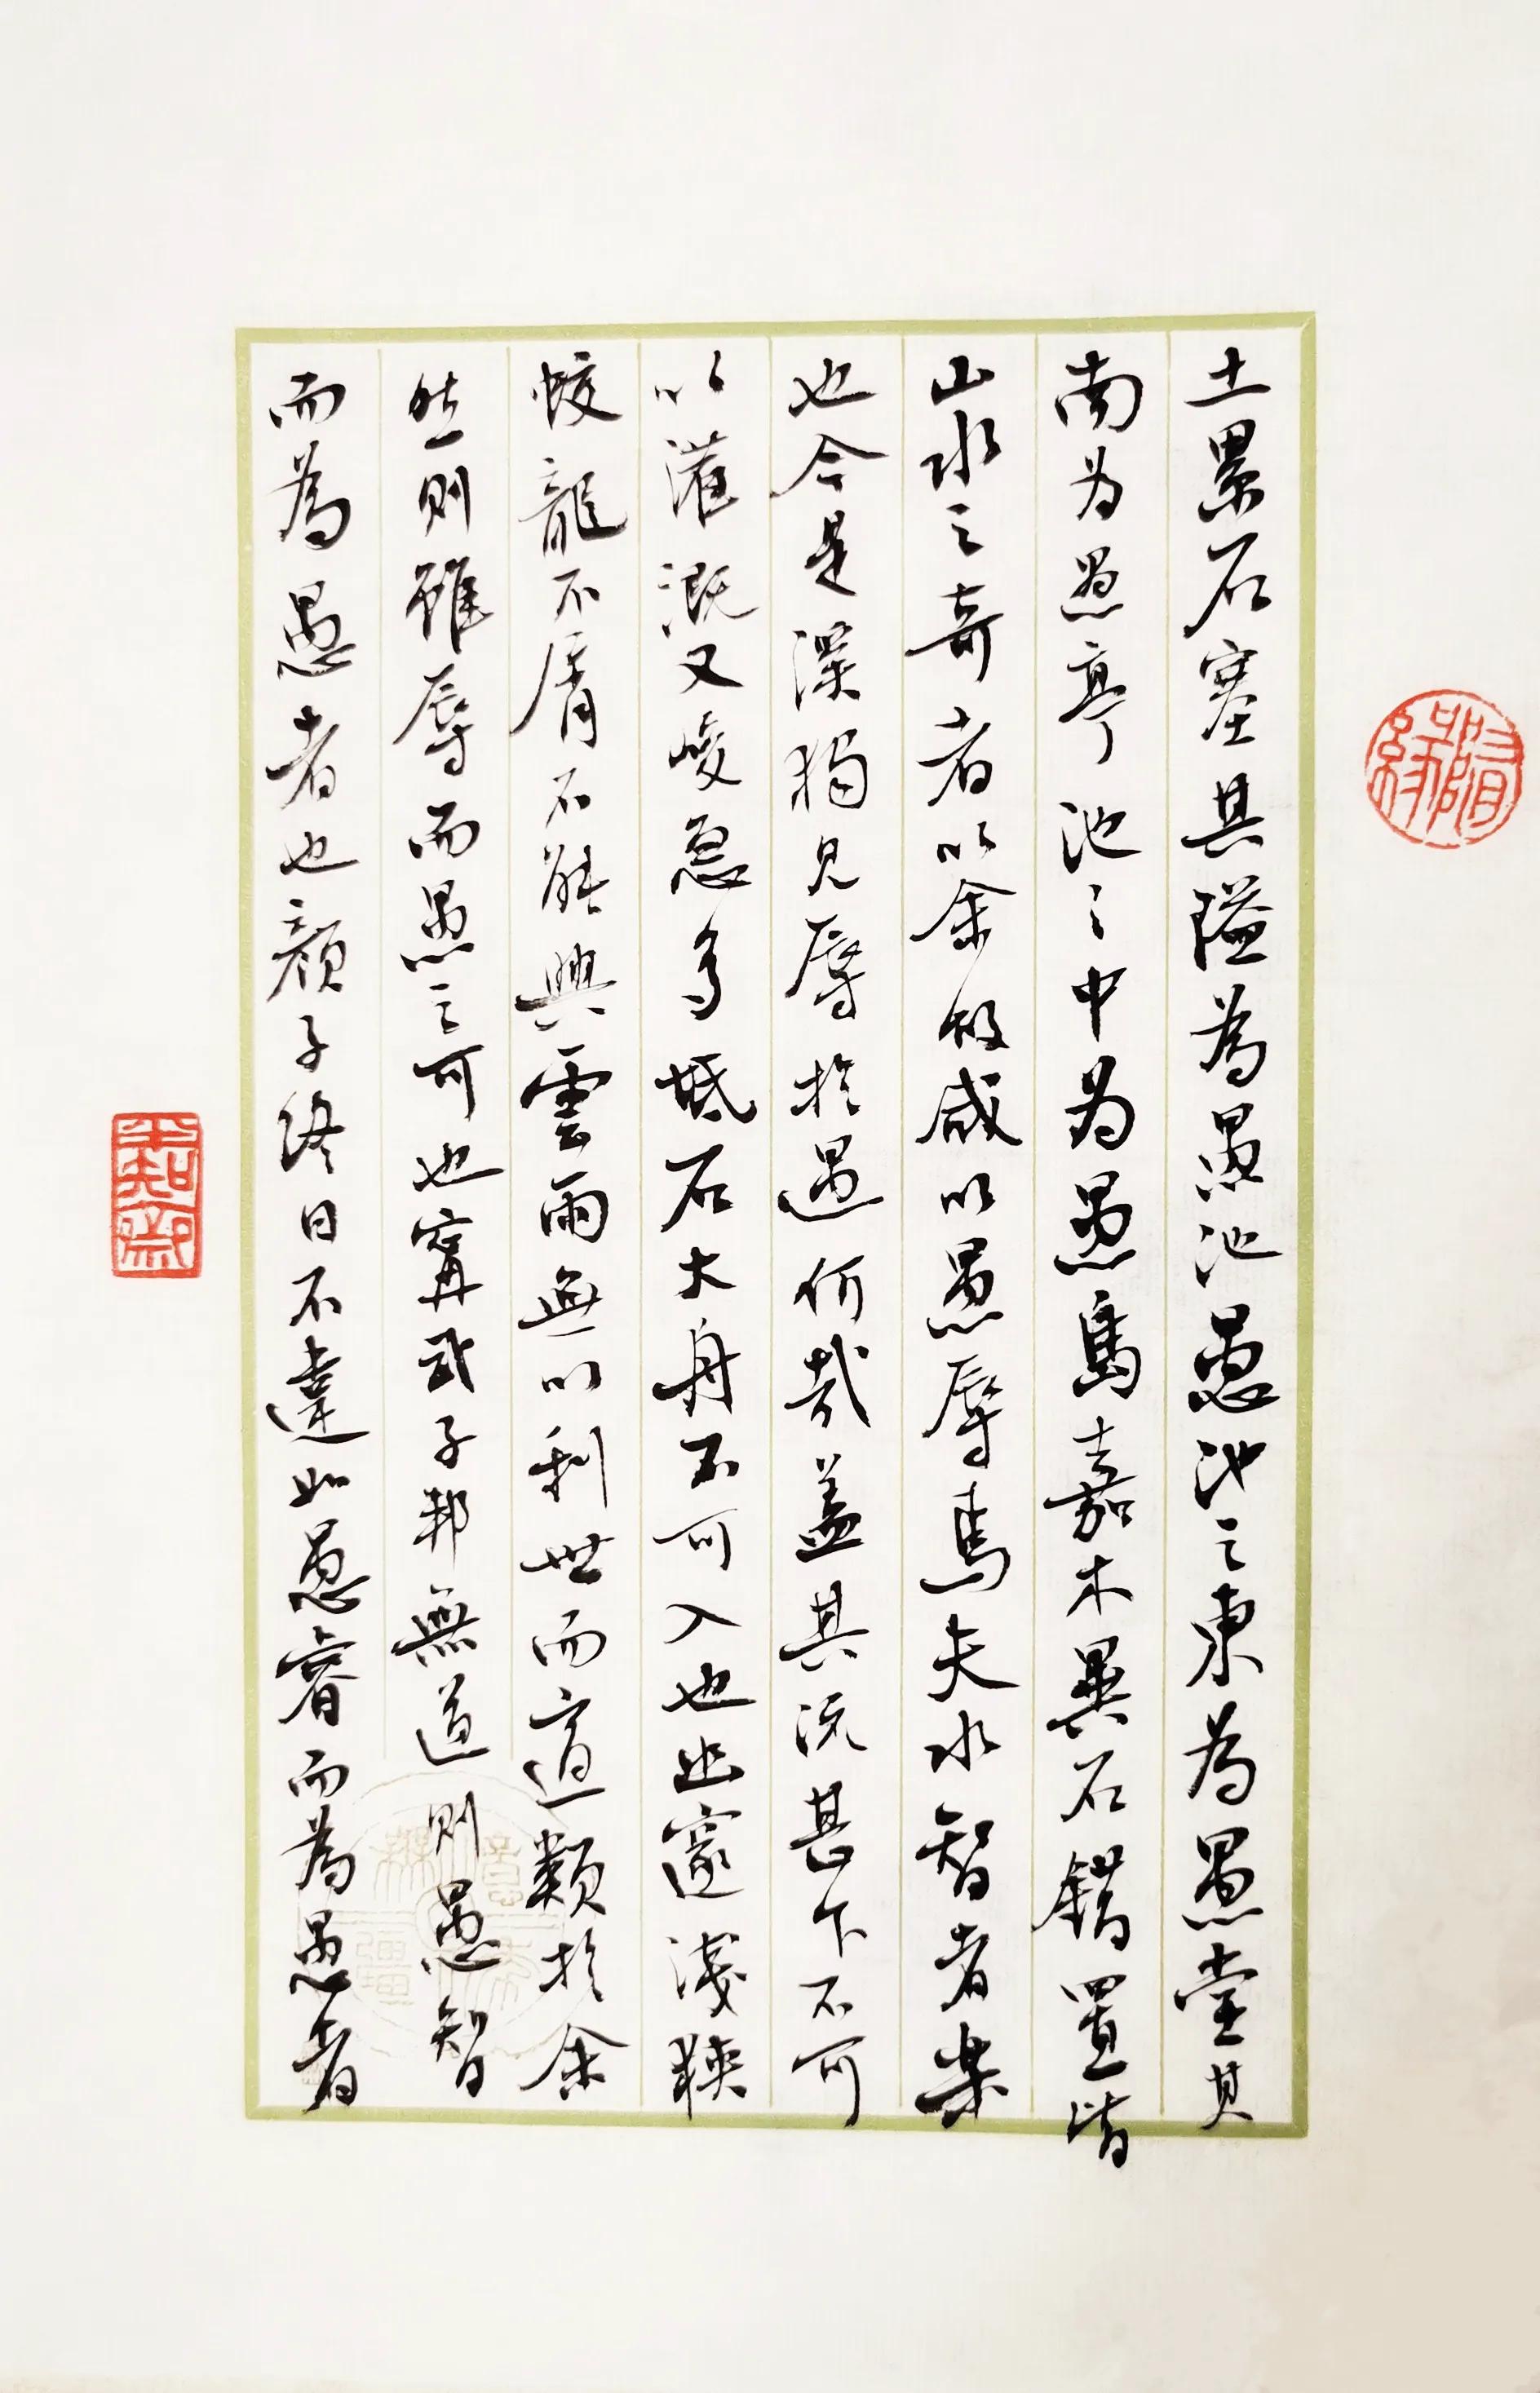 土累石塞其隘為愚池愚池之東為愚堂其
南为愚亭池之中为愚島嘉木異石錯置皆
山水之奇者以余故咸以愚辱焉夫水智者樂
也今是溪獨見辱於愚何哉蓋其流甚下不可
以灌溉又峻急多坻石大舟不可入也幽邃淺狹
蛟龍不屑不能興雲雨無以利世而適類於余
然則雖辱而愚之可也寗武子邦無道則愚智
而為愚者也顏子終日不違如愚睿而為愚者